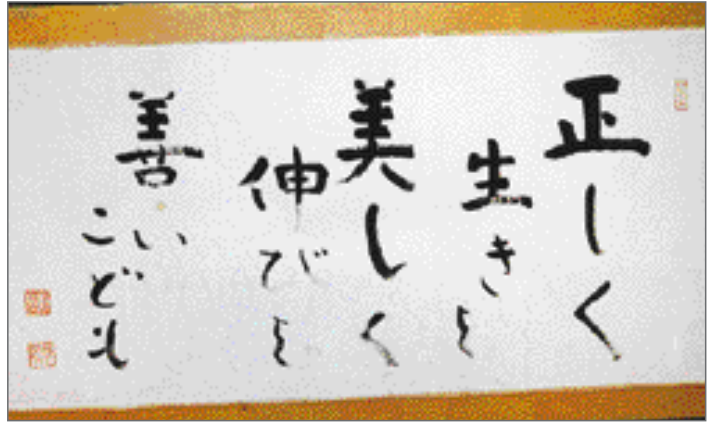 正しく
生きよ
美しく
伸びよ
善い
こども